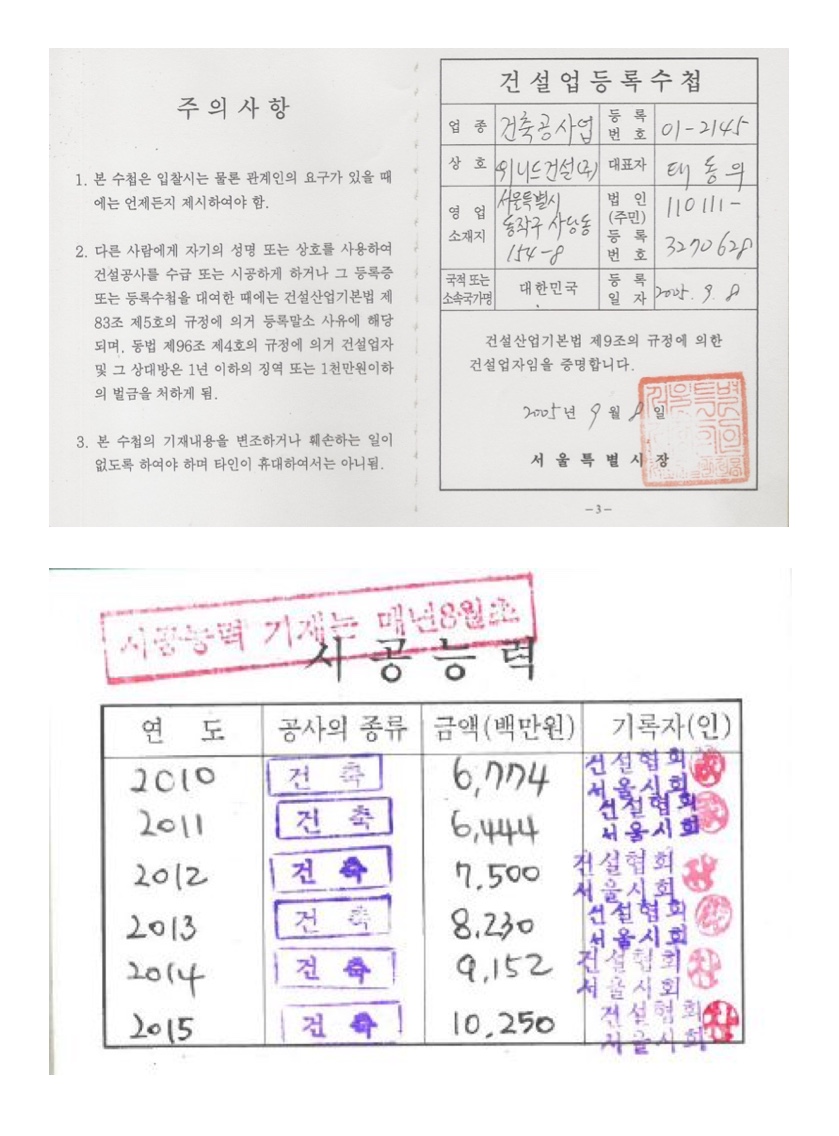 주의사항
1. 본 수첩은 입찰시는 물론 관계인의 요구가 있을 때
에는 언제든지 제시하여야 함.
2. 다른 사람에게 자기의 성명 또는 상호를 사용하여
건설공사를 수급 또는 시공하게 하거나 그 등록증
또는 등록수첩을 대여한 때에는 건설산업기본법 제
83조 제5호의 규정에 의거 등록말소 사유에 해당
되며, 동법 제96조 제4호의 규정에 의거 건설업자
및 그 상대방은 1년 이하의 징역 또는 1천만원이하
의 벌금을 처하게 됨.
3. 본 수첩의 기재내용을 변조하거나 훼손하는 일이
없도록 하여야 하며 타인이 휴대하여서는 아니됨.
건설업등록수첩
업 종 건축공사업 등 록 번 호 01-2145
상 호 위니드건설(주) 대표자 태동의
영 업 소재지 서울특별시 동작구 사당동 154-8 법 인 (주민) 등 록 번 호 110111-3270628
국적 또는 소속국가명 대한민국 등 록 일 자 2005. 9. 8
건설산업기본법 제9조의 규정에 의한
건설업자임을 증명합니다.
2005년 9월 8일
서울특별시장
-3-
시공능력 기재는 매년8월초
시공능력
연 도 공사의 종류 금액(백만원) 기록자(인)
2010 건 축 6,774 건설협회 서울시회
2011 건 축 6,444 건설협회 서울시회
2012 건 축 7,500 건설협회 서울시회
2013 건 축 8,230 건설협회 서울시회
2014 건 축 9,152 건설협회 서울시회
2015 건 축 10,250 건설협회 서울시회